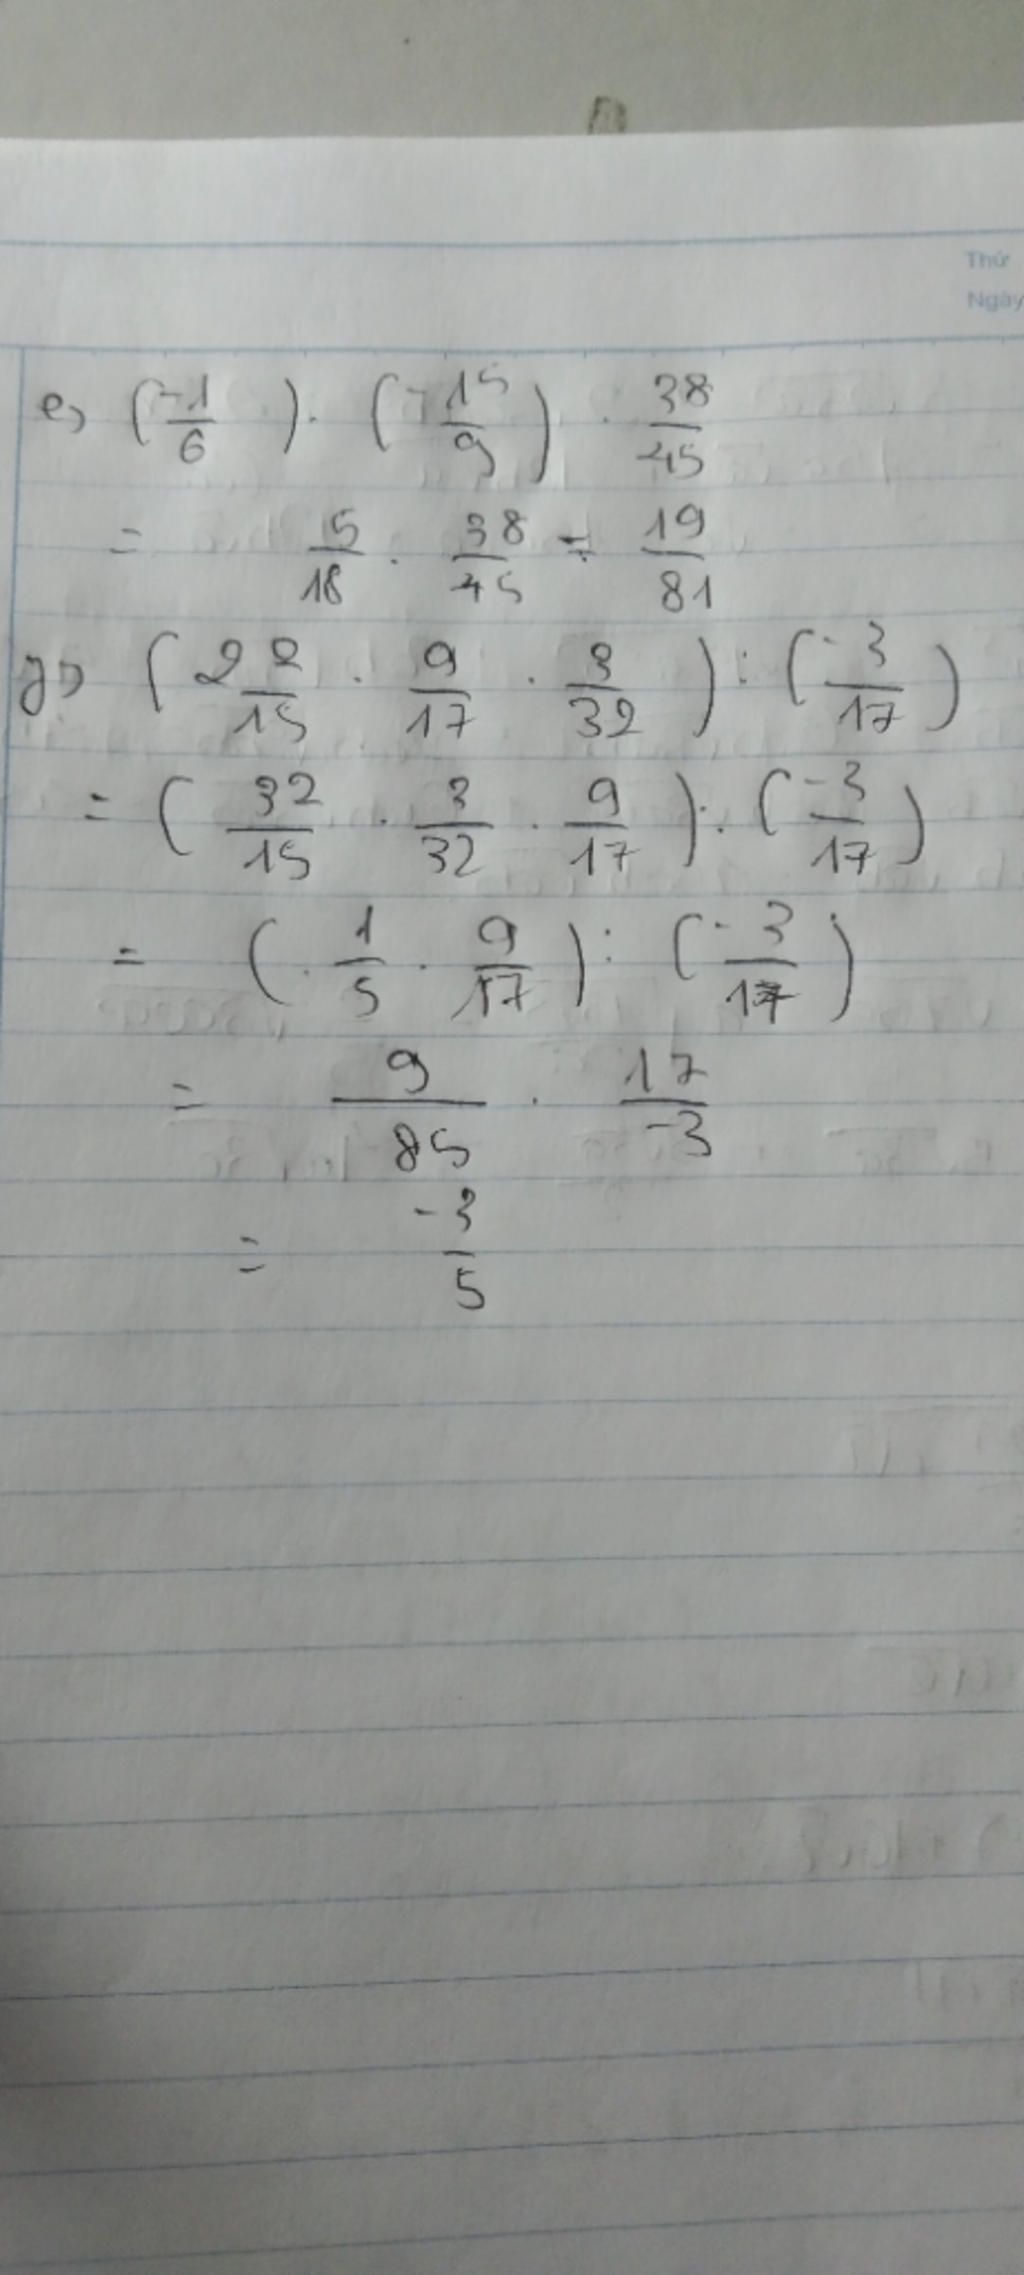 Thứ
Ngày
e, (-1/6) . (-15/9) . 38/45
= 5/18 . 38/45 = 19/81
g, (2 2/15 . 9/17 . 3/32) : (-3/17)
= (32/15 . 3/32 . 9/17) : (-3/17)
= (1/5 . 9/17) : (-3/17)
= 9/85 . 17/-3
= -3/5